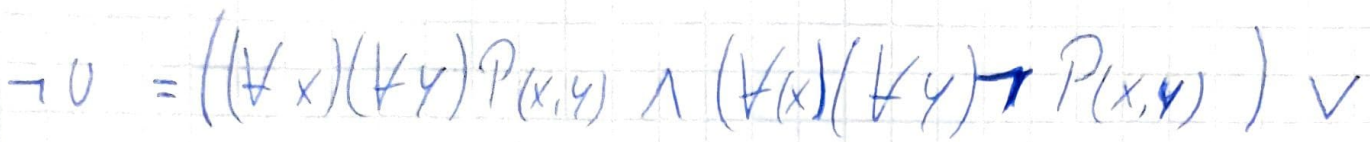 ¬U = ((∀x)(∀y)P(x,y) ∧ (∀(x)(∀y)¬P(x,y)) ∨